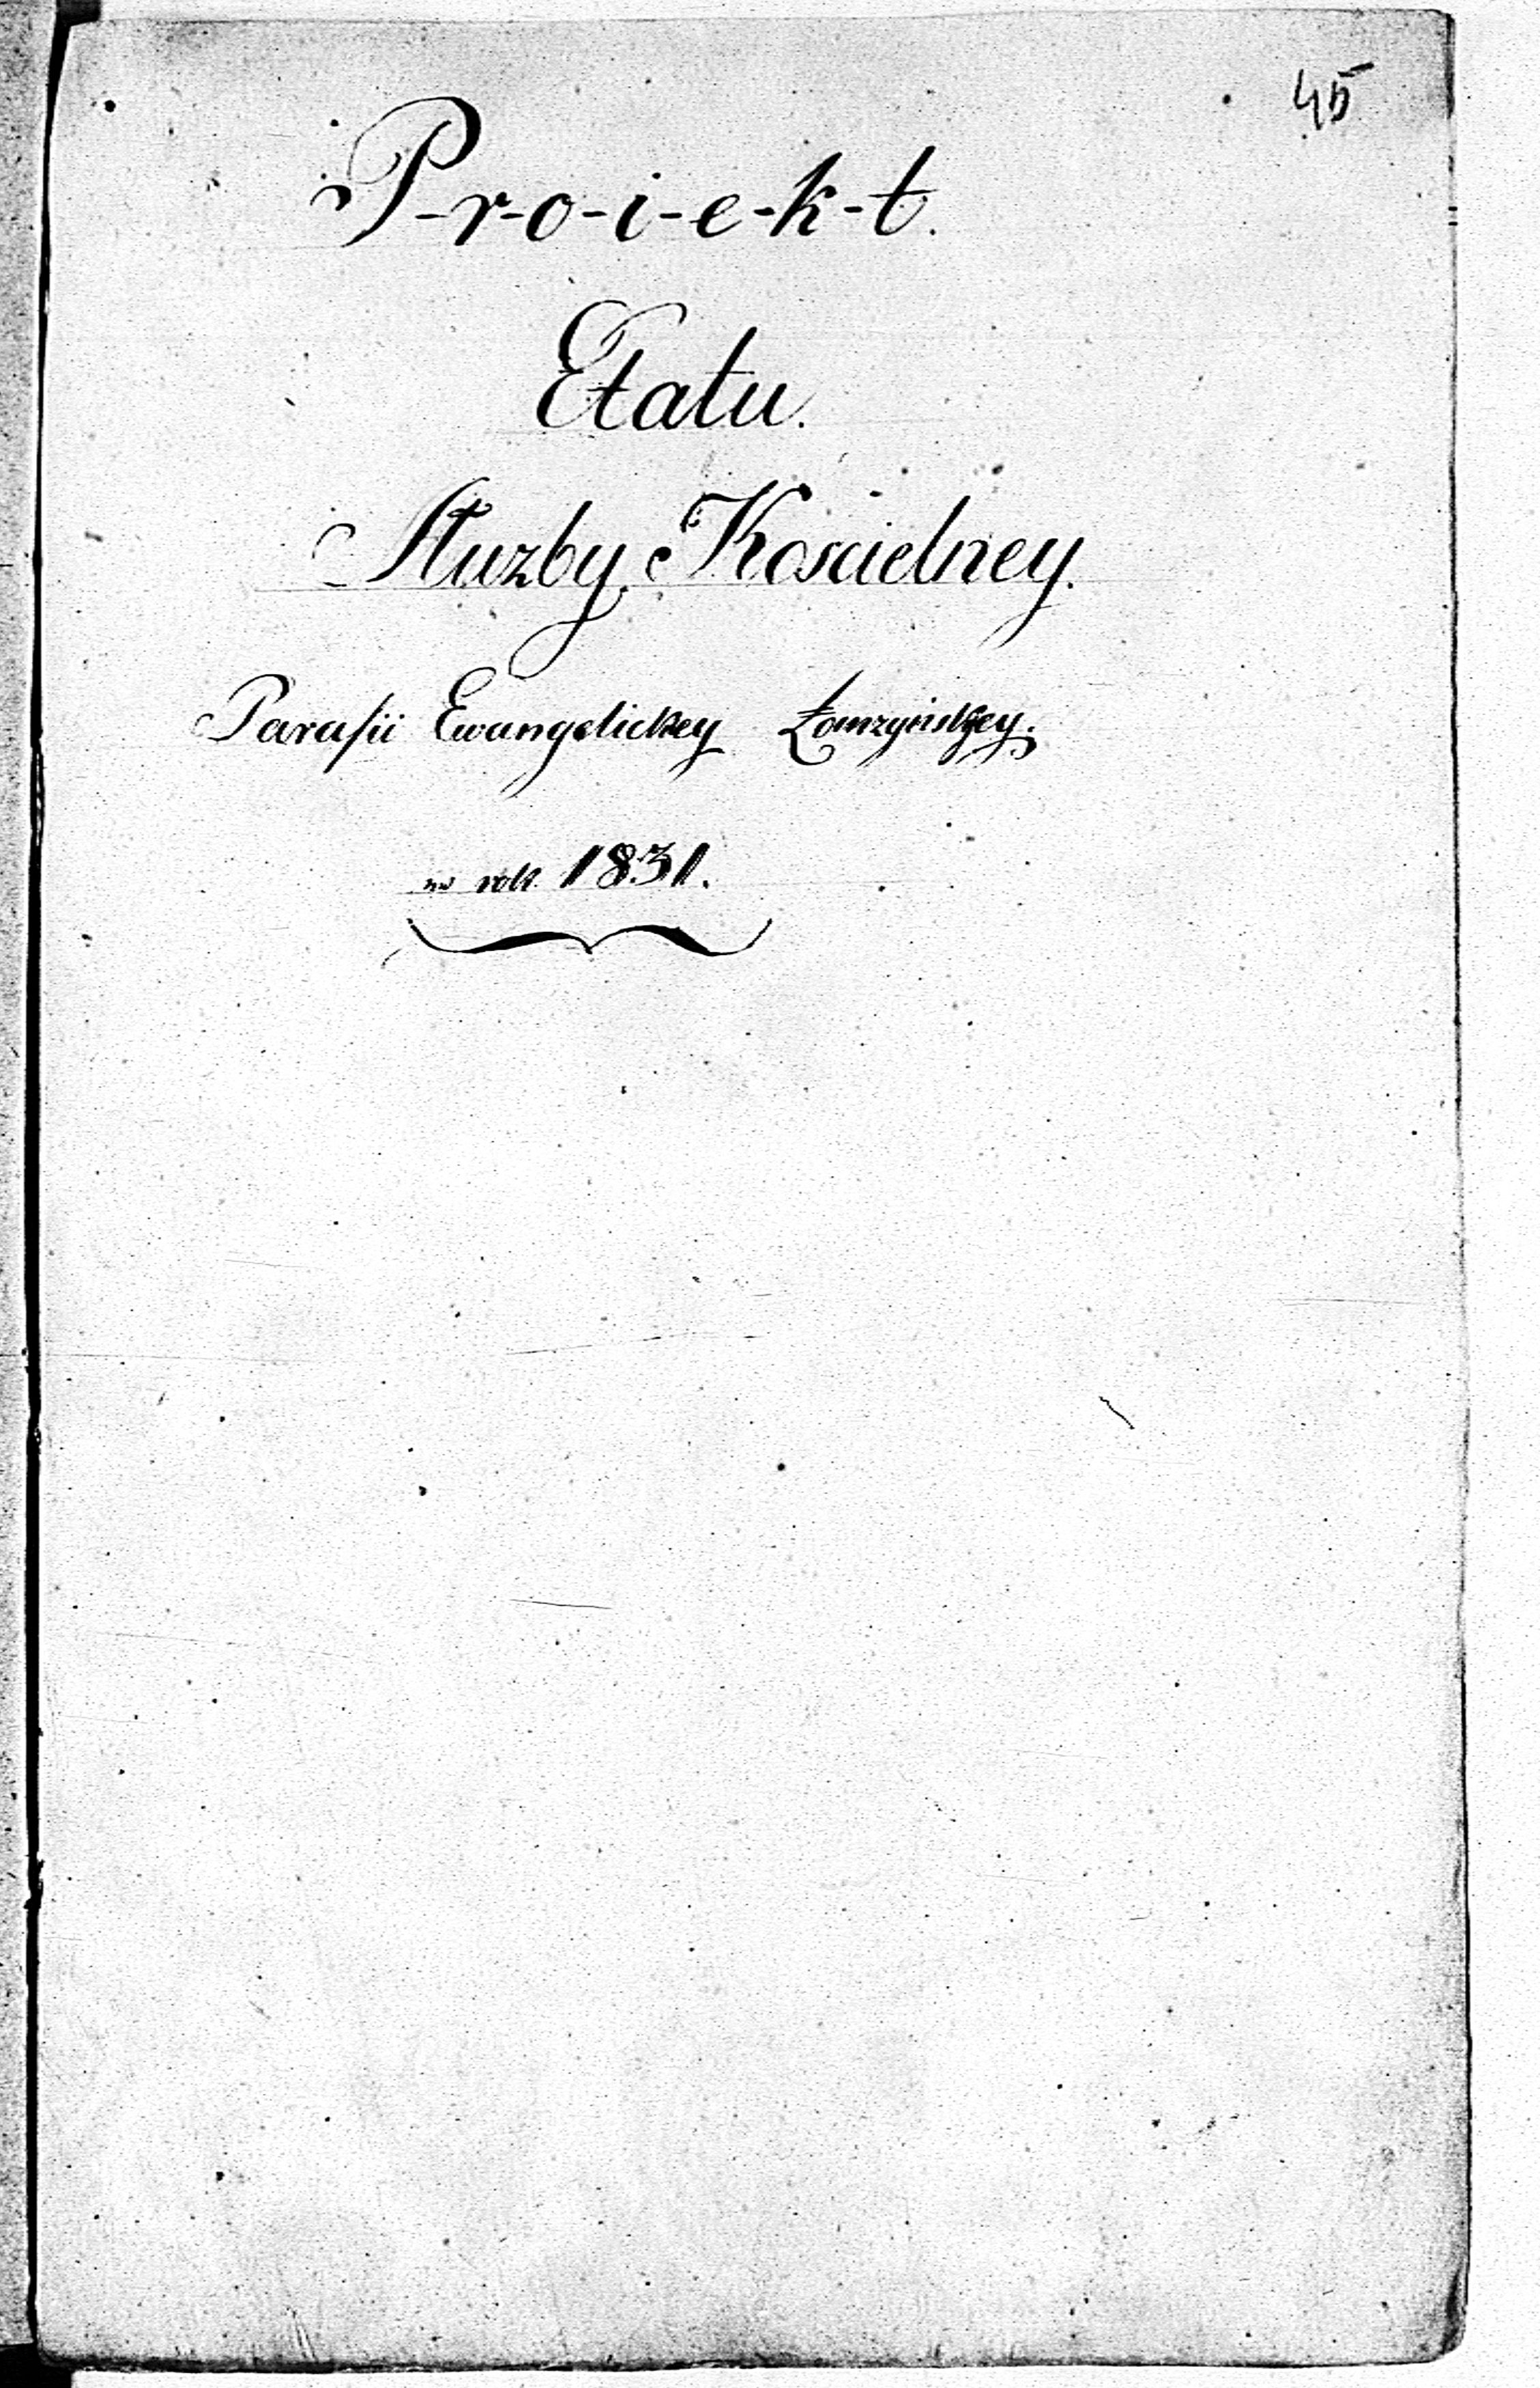 45
P-r-o-i-e-k-t.
Etatu.
Służby Koscielney.
Parafii Ewangelickey Łomzyńskiey.
na rok 1831.